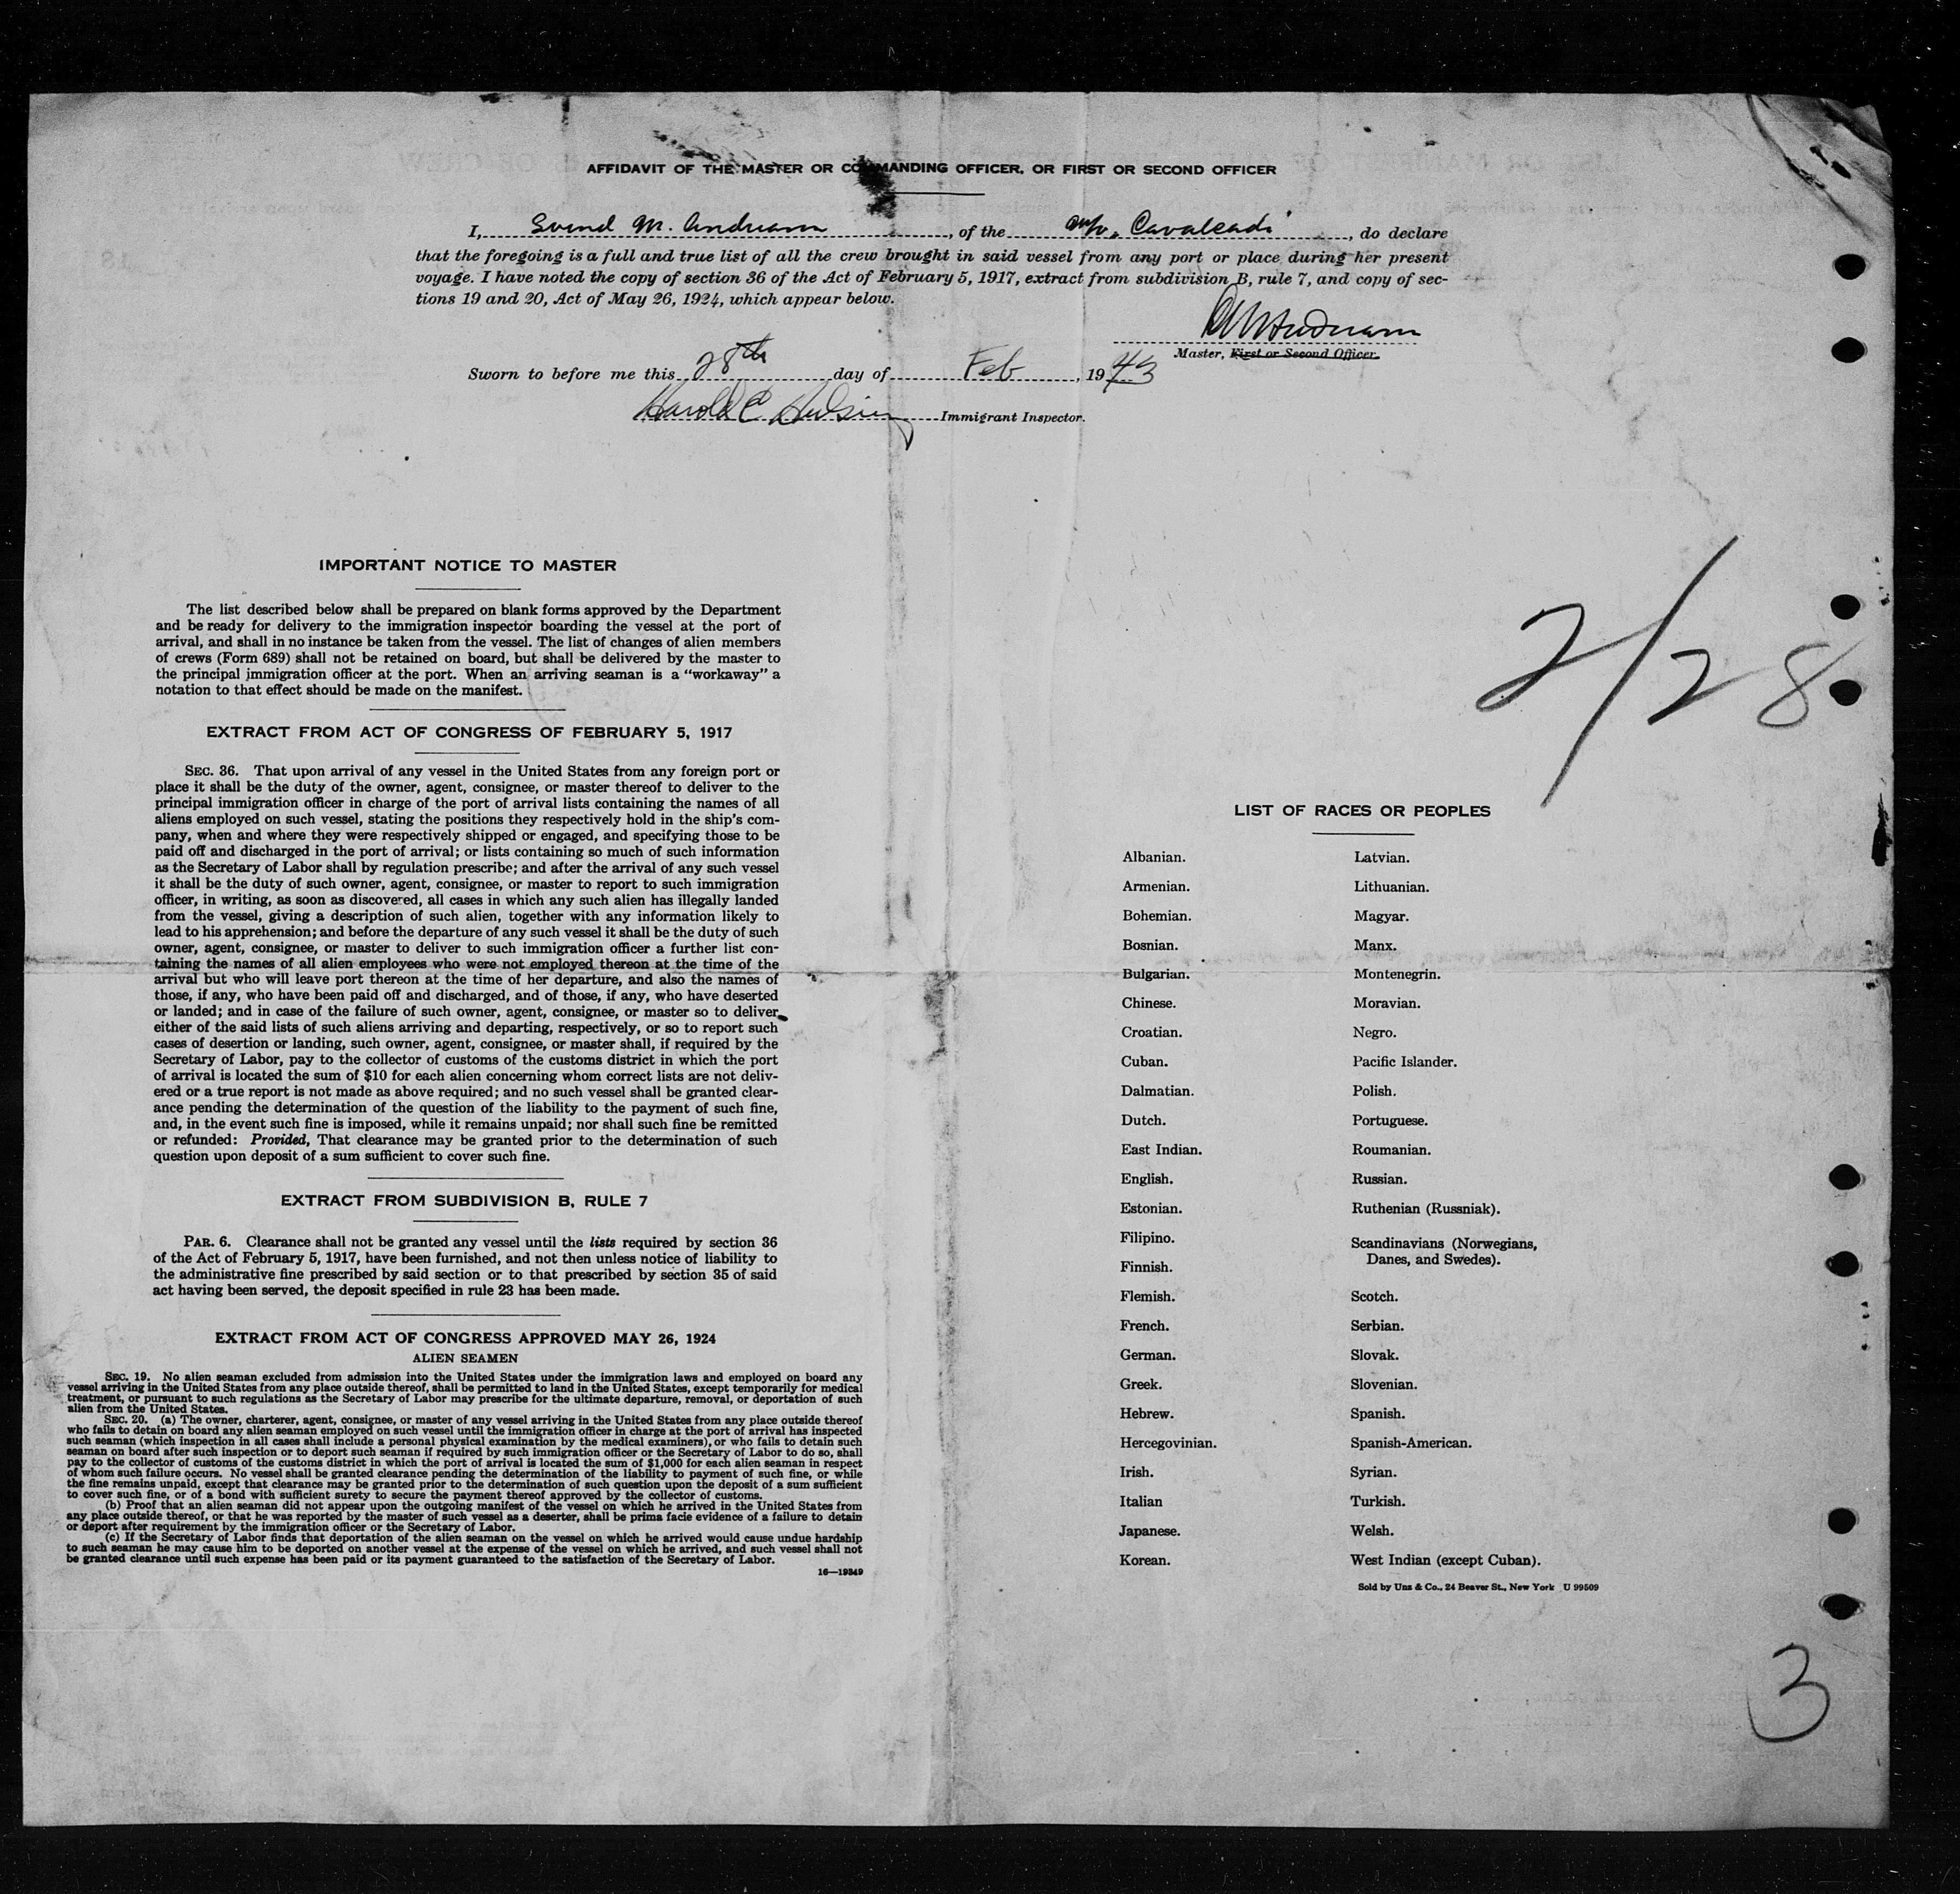 AFFIDAVIT OF THE MASTER OR COMMANDING OFFICER, OR FIRST OR SECOND OFFICER
I, Svend M. Andreasen, of the m/v. Cavalcadi, do declare
that the foregoing is a full and true list of all the crew brought in said vessel from any port or place during her present
voyage. I have noted the copy of section 36 of the Act of February 5, 1917, extract from subdivision B, rule 7, and copy of sec-
tions 19 and 20, Act of May 26, 1924, which appear below.
Master, First or Second Officer.
Sworn to before me this 28th day of Feb, 1943
Harold C Immigrant Inspector.
2/28
IMPORTANT NOTICE TO MASTER
The list described below shall be prepared on blank forms approved by the Department
and be ready for delivery to the immigration inspector boarding the vessel at the port of
arrival, and shall in no instance be taken from the vessel. The list of changes of alien members
of crews (Form 689) shall not be retained on board, but shall be delivered by the master to
the principal immigration officer at the port. When an arriving seaman is a "workaway" a
notation to that effect should be made on the manifest.
EXTRACT FROM ACT OF CONGRESS OF FEBRUARY 5, 1917
SEC. 36. That upon arrival of any vessel in the United States from any foreign port or
place it shall be the duty of the owner, agent, consignee, or master thereof to deliver to the
principal immigration officer in charge of the port of arrival lists containing the names of all
aliens employed on such vessel, stating the positions they respectively hold in the ship's com-
pany, when and where they were respectively shipped or engaged, and specifying those to be
paid off and discharged in the port of arrival; or lists containing so much of such information
as the Secretary of Labor shall by regulation prescribe; and after the arrival of any such vessel
it shall be the duty of such owner, agent, consignee, or master to report to such immigration
officer, in writing, as soon as discovered, all cases in which any such alien has illegally landed
from the vessel, giving a description of such alien, together with any information likely to
lead to his apprehension; and before the departure of any such vessel it shall be the duty of such
owner, agent, consignee, or master to deliver to such immigration officer a further list con-
taining the names of all alien employees who were not employed thereon at the time of the
arrival but who will leave port thereon at the time of her departure, and also the names of
those, if any, who have been paid off and discharged, and of those, if any, who have deserted
or landed; and in case of the failure of such owner, agent, consignee, or master so to deliver
either of the said lists of such aliens arriving and departing, respectively, or so to report such
cases of desertion or landing, such owner, agent, consignee, or master shall, if required by the
Secretary of Labor, pay to the collector of customs of the customs district in which the port
of arrival is located the sum of $10 for each alien concerning whom correct lists are not deliv-
ered or a true report is not made as above required; and no such vessel shall be granted clear-
ance pending the determination of the question of the liability to the payment of such fine,
and, in the event such fine is imposed, while it remains unpaid; nor shall such fine be remitted
or refunded: Provided, That clearance may be granted prior to the determination of such
question upon deposit of a sum sufficient to cover such fine.
EXTRACT FROM SUBDIVISION B, RULE 7
PAR. 6. Clearance shall not be granted any vessel until the lists required by section 36
of the Act of February 5, 1917, have been furnished, and not then unless notice of liability to
the administrative fine prescribed by said section or to that prescribed by section 35 of said
act having been served, the deposit specified in rule 23 has been made.
EXTRACT FROM ACT OF CONGRESS APPROVED MAY 26, 1924
ALIEN SEAMEN
SEC. 19. No alien seaman excluded from admission into the United States under the immigration laws and employed on board any
vessel arriving in the United States from any place outside thereof, shall be permitted to land in the United States, except temporarily for medical
treatment, or pursuant to such regulations as the Secretary of Labor may prescribe for the ultimate departure, removal, or deportation of such
alien from the United States.
SEC. 20. (a) The owner, charterer, agent, consignee, or master of any vessel arriving in the United States from any place outside thereof
who fails to detain on board any alien seaman employed on such vessel until the immigration officer in charge at the port of arrival has inspected
such seaman (which inspection in all cases shall include a personal physical examination by the medical examiners), or who fails to detain such
seaman on board after such inspection or to deport such seaman if required by such immigration officer or the Secretary of Labor to do so, shall
pay to the collector of customs of the customs district in which the port of arrival is located the sum of $1,000 for each alien seaman in respect
of whom such failure occurs. No vessel shall be granted clearance pending the determination of the liability to payment of such fine, or while
the fine remains unpaid, except that clearance may be granted prior to the determination of such question upon the deposit of a sum sufficient
to cover such fine, or of a bond with sufficient surety to secure the payment thereof approved by the collector of customs.
(b) Proof that an alien seaman did not appear upon the outgoing manifest of the vessel on which he arrived in the United States from
any place outside thereof, or that he was reported by the master of such vessel as a deserter, shall be prima facie evidence of a failure to detain
or deport after requirement by the immigration officer or the Secretary of Labor.
(c) If the Secretary of Labor finds that deportation of the alien seaman on the vessel on which he arrived would cause undue hardship
to such seaman he may cause him to be deported on another vessel at the expense of the vessel on which he arrived, and such vessel shall not
be granted clearance until such expense has been paid or its payment guaranteed to the satisfaction of the Secretary of Labor.
16—19349
LIST OF RACES OR PEOPLES
Albanian.
Armenian.
Bohemian.
Bosnian.
Bulgarian.
Chinese.
Croatian.
Cuban.
Dalmatian.
Dutch.
East Indian.
English.
Estonian.
Filipino.
Finnish.
Flemish.
French.
German.
Greek.
Hebrew.
Hercegovinian.
Irish.
Italian
Japanese.
Korean.
Latvian.
Lithuanian.
Magyar.
Manx.
Montenegrin.
Moravian.
Negro.
Pacific Islander.
Polish.
Portuguese.
Roumanian.
Russian.
Ruthenian (Russniak).
Scandinavians (Norwegians,
Danes, and Swedes).
Scotch.
Serbian.
Slovak.
Slovenian.
Spanish.
Spanish-American.
Syrian.
Turkish.
Welsh.
West Indian (except Cuban).
Sold by Unz & Co., 24 Beaver St., New York U 99509
3